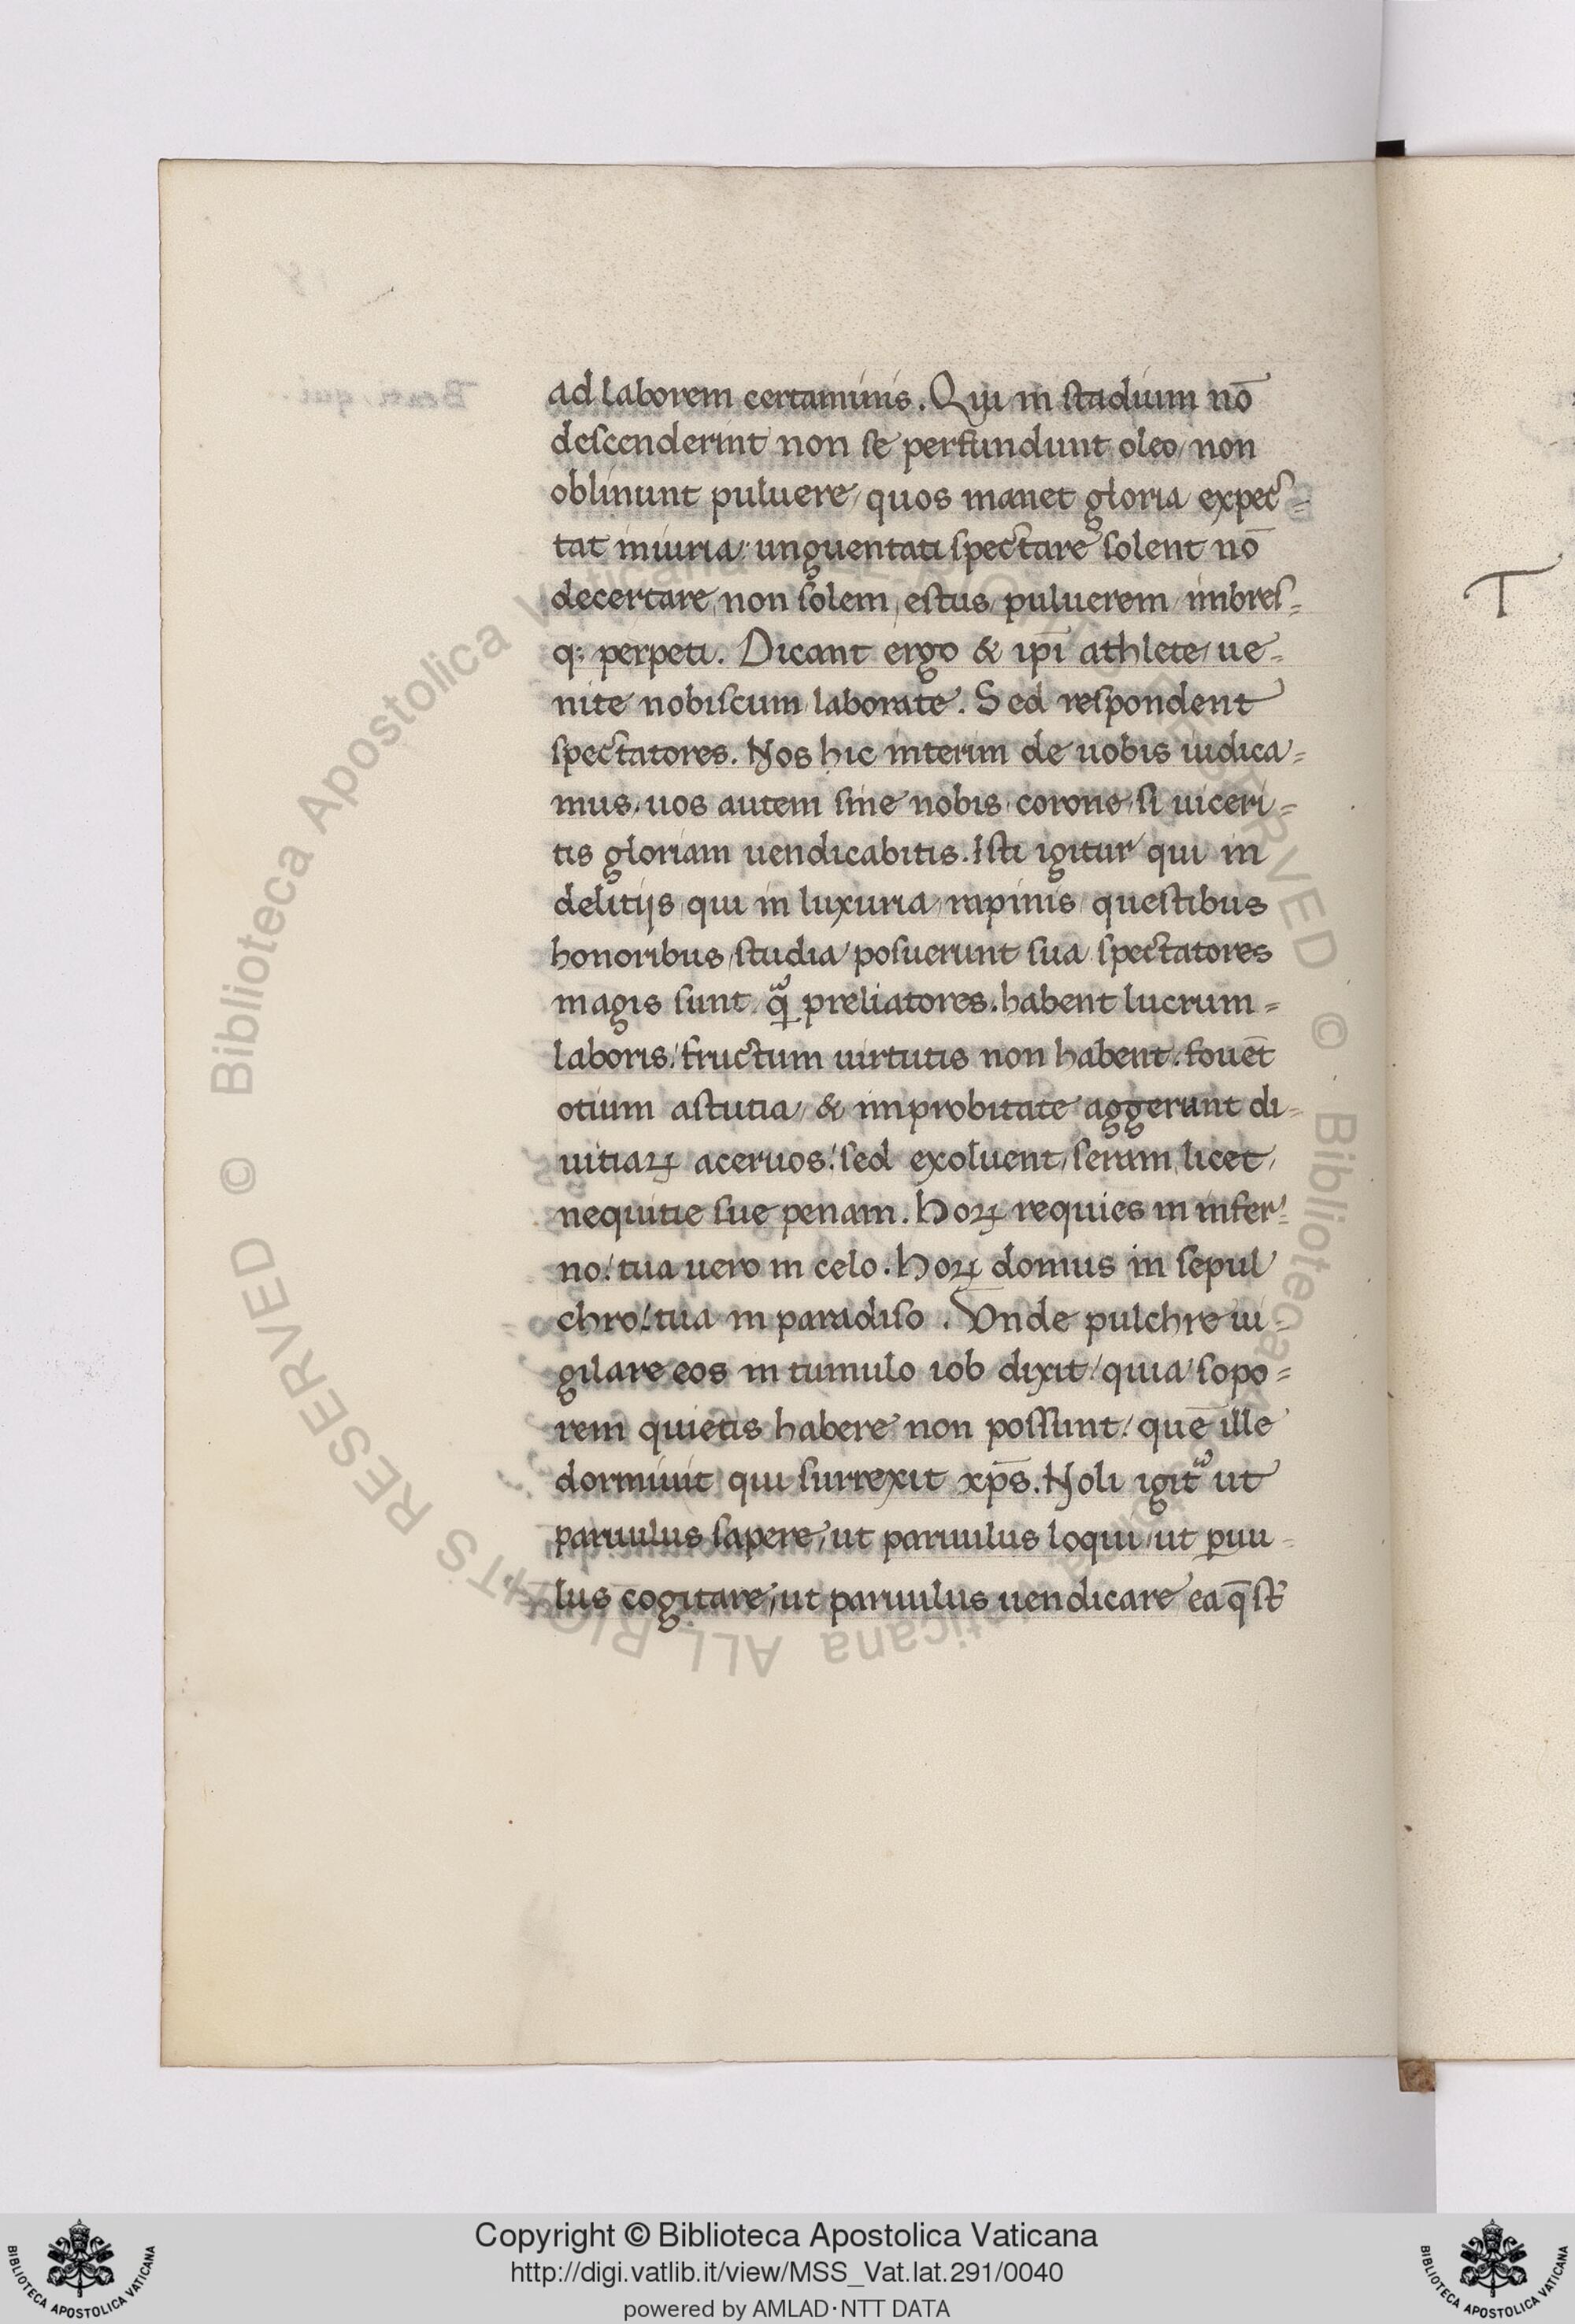 ad laborem certaminis. Qui in stadium nō
descenderint non se perfundunt oleo, non
oblinunt puluere, quos manet gloria, expec=
tat iniuria, unguentati spectare solent nō
decertare, non solem, estus, puluerem, imbres=
q; perpeti. Dicant ergo & ip̄i athlete, ue=
nite nobiscum laborate. Sed respondent
spectatores. Nos hic interim de uobis iudica=
mus, uos autem sine nobis, corone, si uiceri=
tis gloriam uendicabitis. Isti igitur qui in
delitijs, qui in luxuria, rapinis, questibus
honoribus, studia posuerunt sua spectatores
magis sunt, q̃ preliatores. habent lucrum=
laboris, fructum uirtutis non habent. fouēt
otium astutia, & improbitate aggerunt di=
uitiaꝝ aceruos, sed exoluent, seram, licet,
nequitie sue penam. Hoꝝ requies in infer=
no, tua uero in celo. Hoꝝ domus in sepul
chro, tua in paradiso. Vnde pulchre ui=
gilare eos in tumulo iob dixit, quia sopo=
rem quietis habere non possunt, quē ille
dormiuit qui surrexit xp̄s. Noli igit᷑ ut
paruulus sapere, ut paruulus loqui, ut ꝑuu=
lus cogitare, ut paruulus uendicare ea q̄ st̄
© Biblioteca Apostolica Vaticana ALL RIGHTS RESERVED © Biblioteca Apostolica Vaticana ALL RIGHTS RESERVED
T
Copyright © Biblioteca Apostolica Vaticana
http://digi.vatlib.it/view/MSS_Vat.lat.291/0040
powered by AMLAD·NTT DATA
BIBLIOTECA APOSTOLICA VATICANA
BIBLIOTECA APOSTOLICA VATICANA